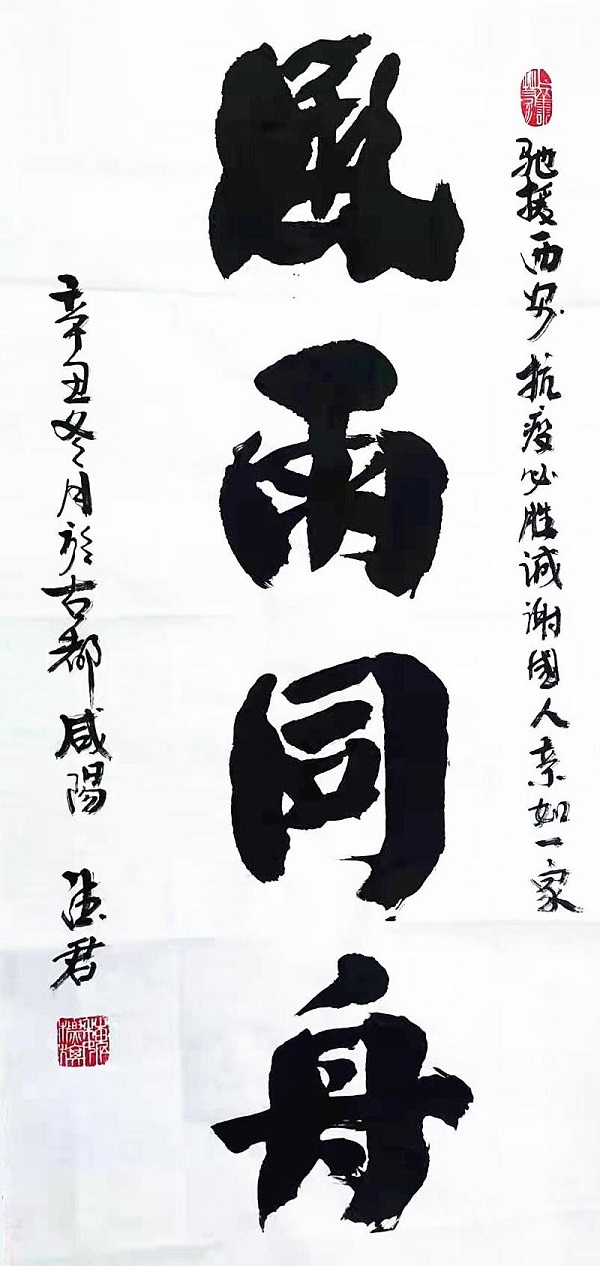 驰援西安抗疫必胜诚谢国人亲如一家
風雨同舟
辛丑冬月於古都咸陽
君